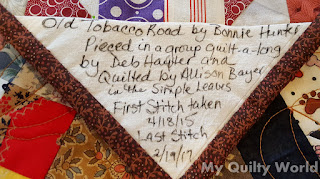 Old Tobacco Road by Bonnie Hunter
Pieced in a group quilt-a-long
by Deb Hayter and
Quilted by Allison Bayer
in the Simple Leaves
First Stitch taken
4/18/15
Last Stitch
2/19/17
My Quilty World